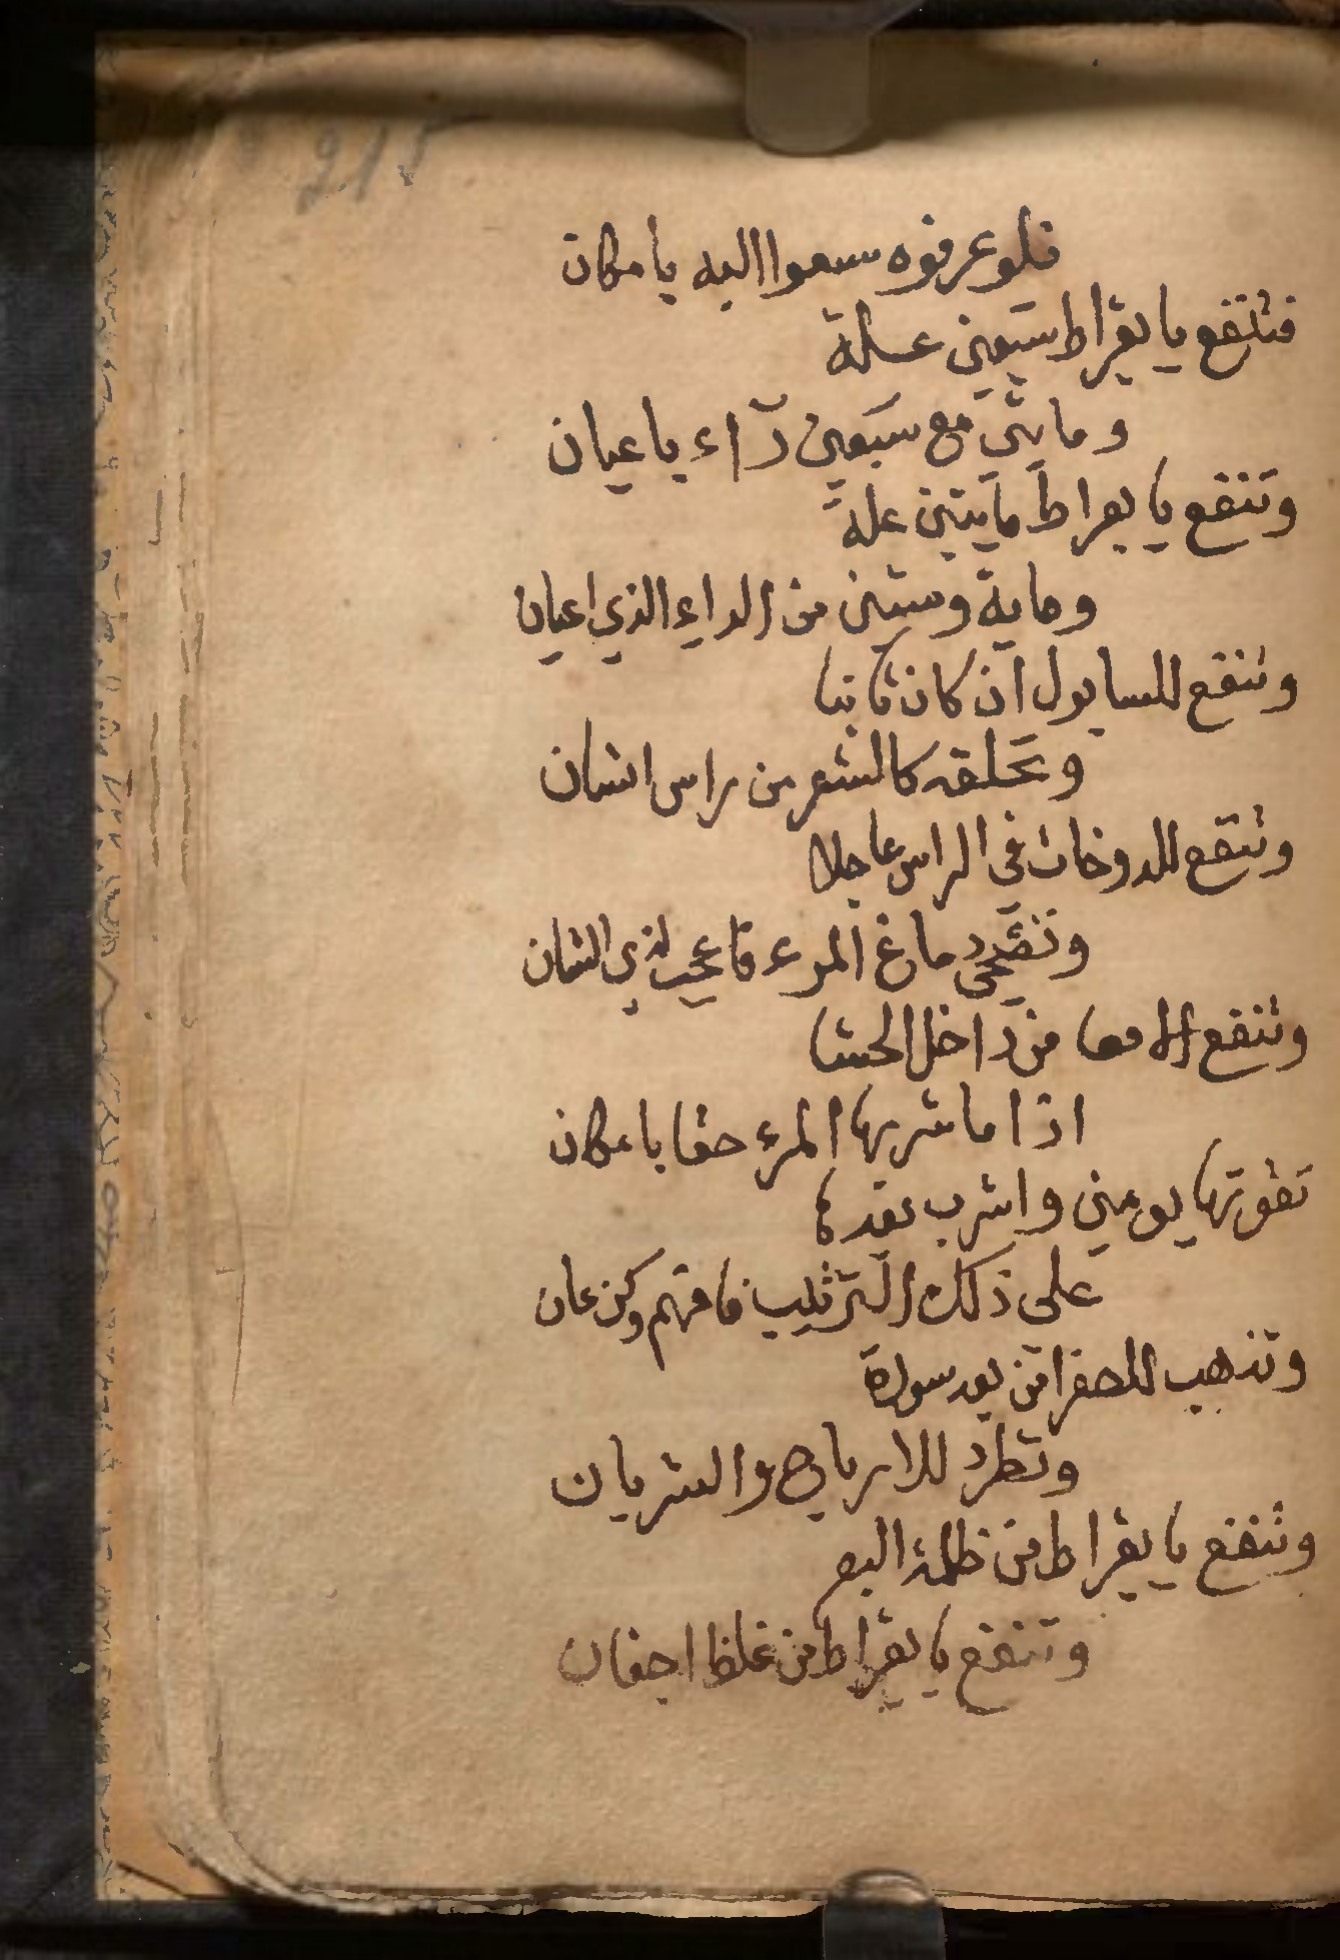 215
فلو عرفوه سعوا اليه يا مكان
فتنفع يا بقراط سبعين علة
ومايتي مع سبعين دآء يا عيان
وتنفع يا بقراط مايتين علة
وماية وستين من الداء الذي اعيان
وتنفع للسايول ان كان ثابتا
وتحلقه كالشعر من راس انسان
وتنفع للدوخات في الراس عاجلا
وتنقي دماغ المرء فاعجب لذي الشان
وتنفع الامعا من داخل الحشا
اذا ما شربها المرء حقا بامكان
تفوتها يومين واشرب بعدها
على ذلك الترتيب فافهم وكن عان
وتذهب للصفرا من بعد سودة
وتطرد للارياح والشريان
وتنفع يا بقراط من ظلمة البصر
وتنفع يا بقراط من غلظ اجفان